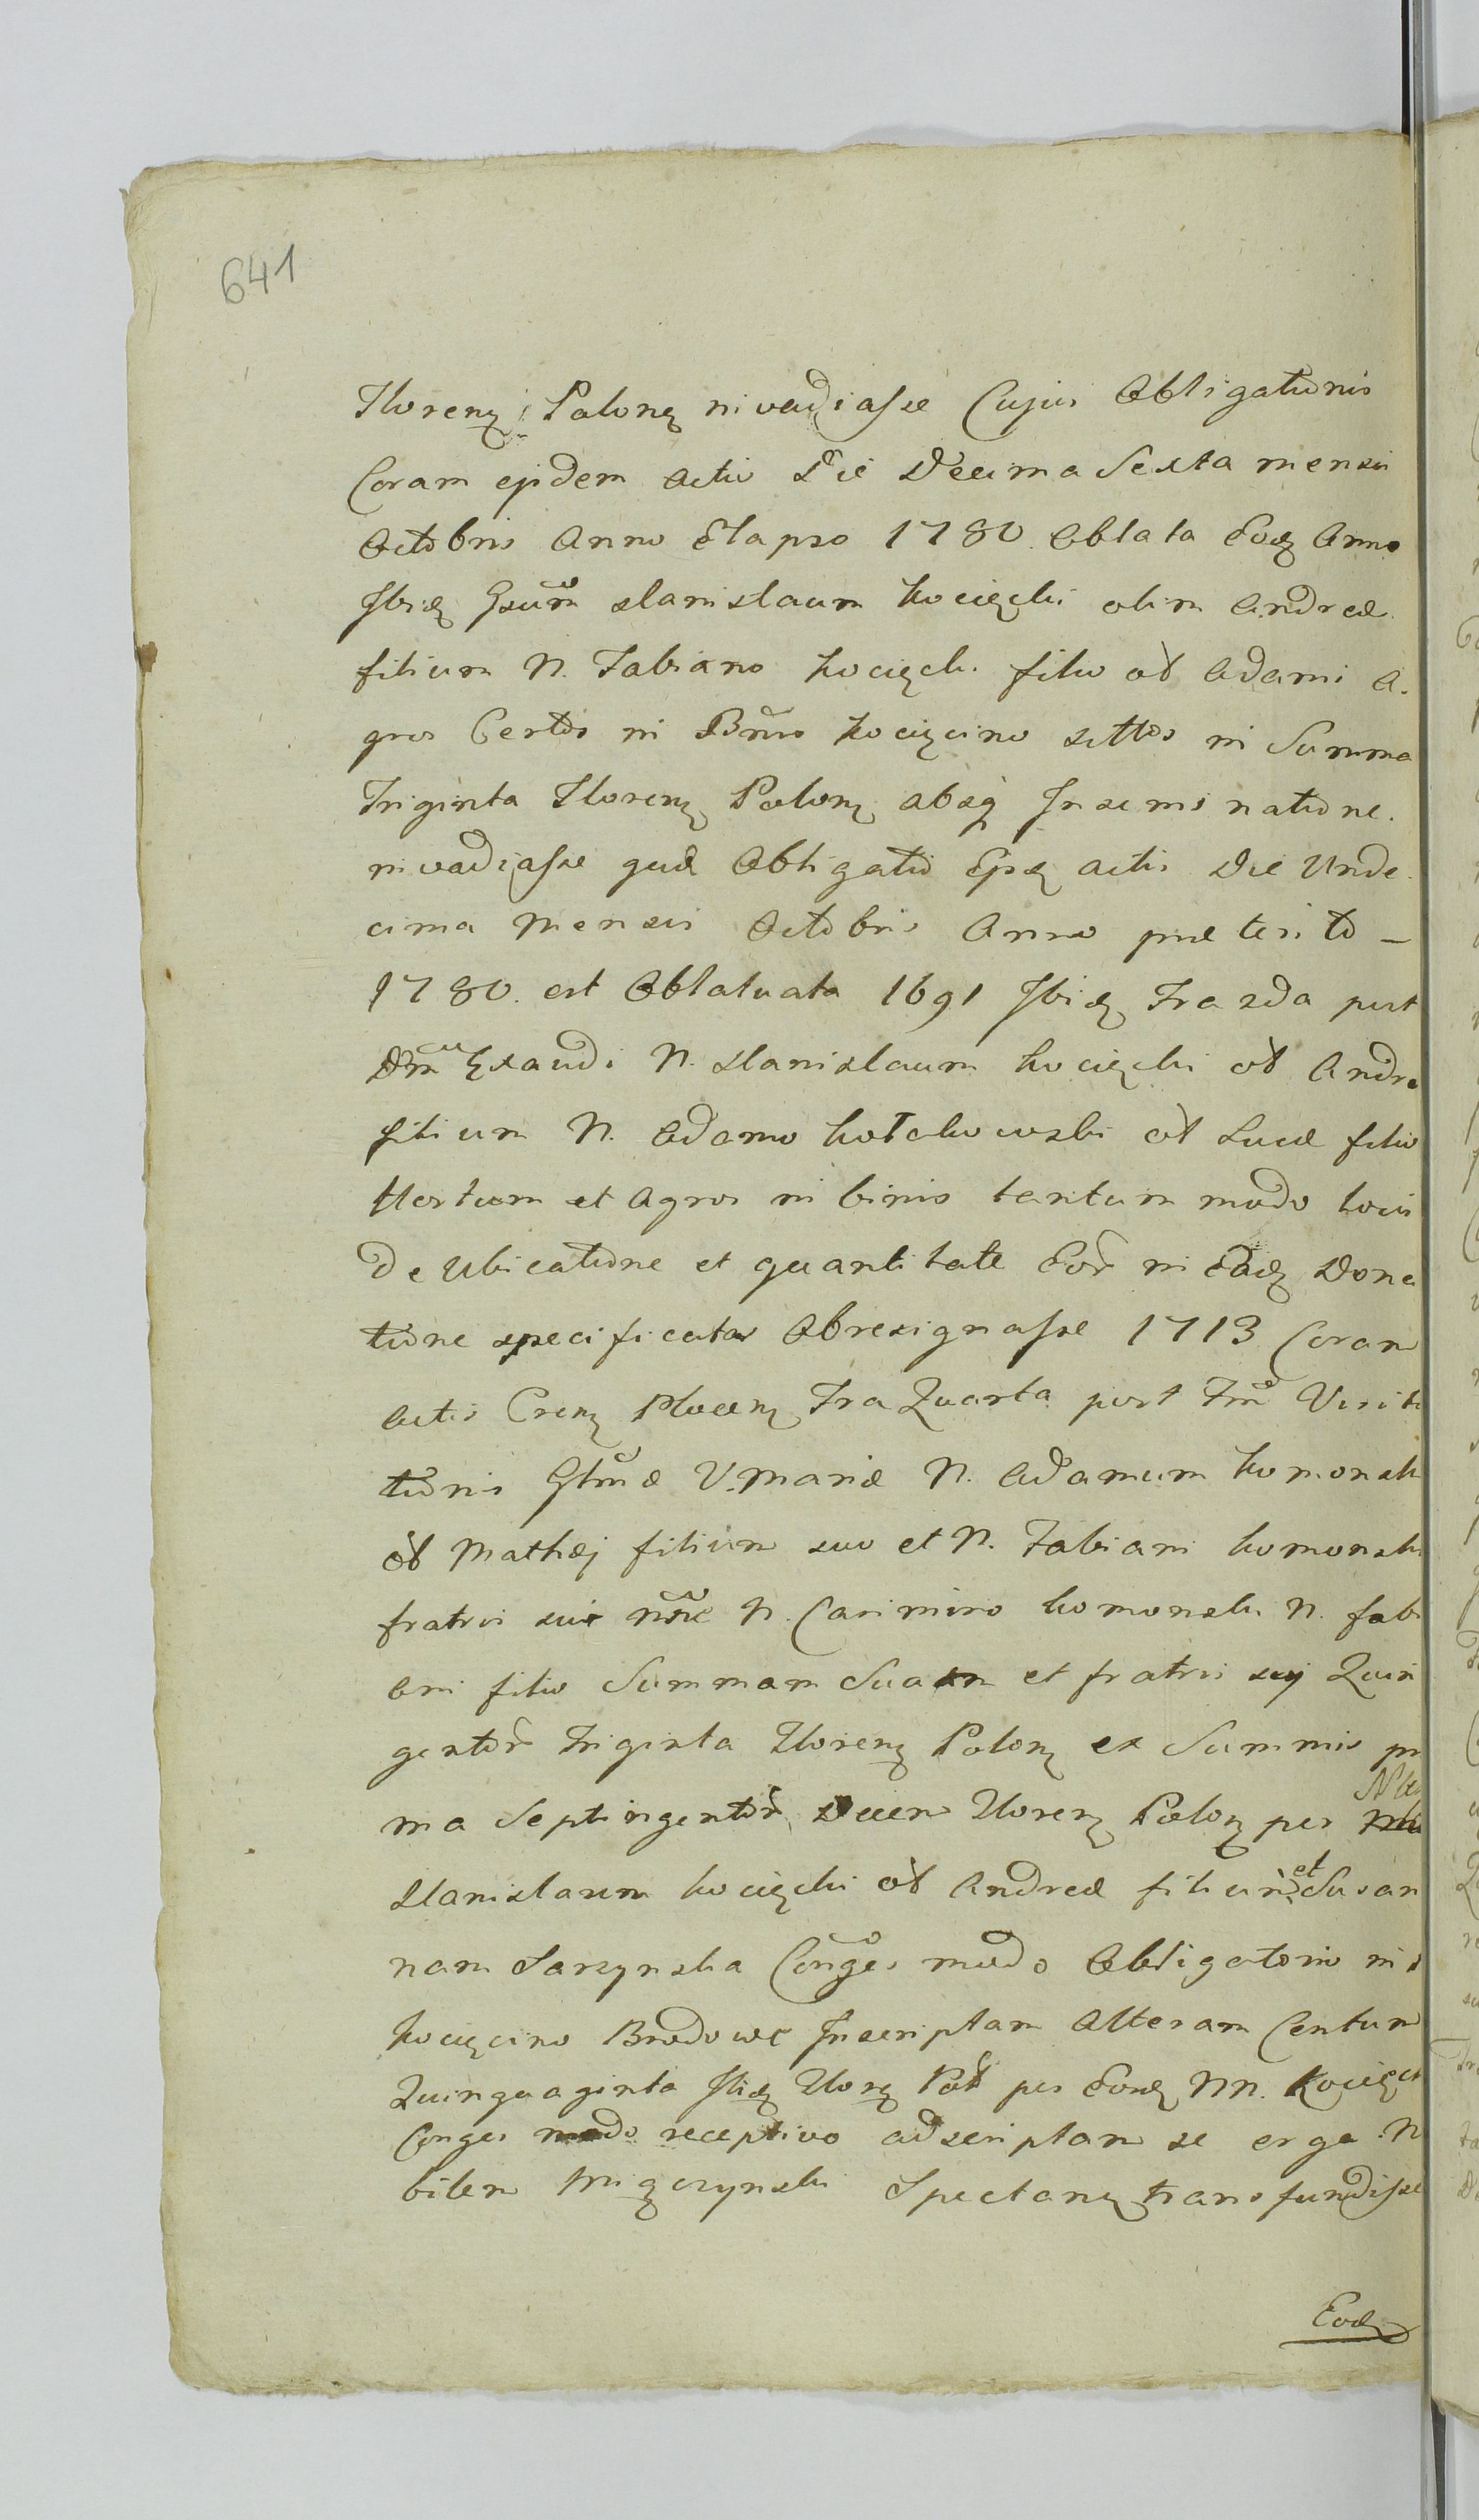 641
Florenꝫ Polonꝫ invadiasse Cujus Obligationis
Coram ejsdem actis Die Decima Sexta mensis
Octobris Anno Elapso 1780 Oblata Eodꝫ Anno
Ibidꝫ Gsum Stanislaum Kocięcki olim Andreæ
filium N. Fabiano Kocięcki filio ol Adami A.
gros Certos in Bnis Kocięcino sittos in Summa
Triginta Florenꝫ Polonꝫ absq Inseminatione.
invadiasse quæ Obligatio Ejsdꝫ actis Die Unde
cima Mensis Octobris Anno præterito –
1780. est Oblatuata 1691 Ibidꝫ Fra 2da post
Dnicam Exaudi N. Stanislaum Kocięcki ol Andre
filium N. Adamo Kotchowski ol Lucæ filio
Hortum et Agros in binis tantum modo locis
De Ubicatione et quantitate Eor in Eadꝫ Dona
tione specificatos Obresignasse 1713 Coram
actis Crenꝫ Plocenꝫ Fra Quarta post Ftm Visita
tionis Gtmæ V. Mariæ N. Adamum Komonski
ol Mathæj filium suo et N. Fabiani Komonski
fratris sui nõie N. Casimiro Komonski N. Fabi
ani filio Summam Suam et fratris suj Quin
gentor Triginta Florenꝫ Polonꝫ ex Summis pri
ma Septingentor Decem Florenꝫ Polonꝫ per
Stanislaum Kocięcki ol Andreæ filium et Susan
nam Sarzynska Conges modo Obligatorio in
Kocięcino Brodowe Inscriptam Alteram Centum
Quinquaginta Itidꝫ Florꝫ Pol per Eosdꝫ NN. Kocięck
Conges modo receptivo adscriptam se erga N
bilem Miączynski Spectanꝫ transfundisse
Eodꝫ